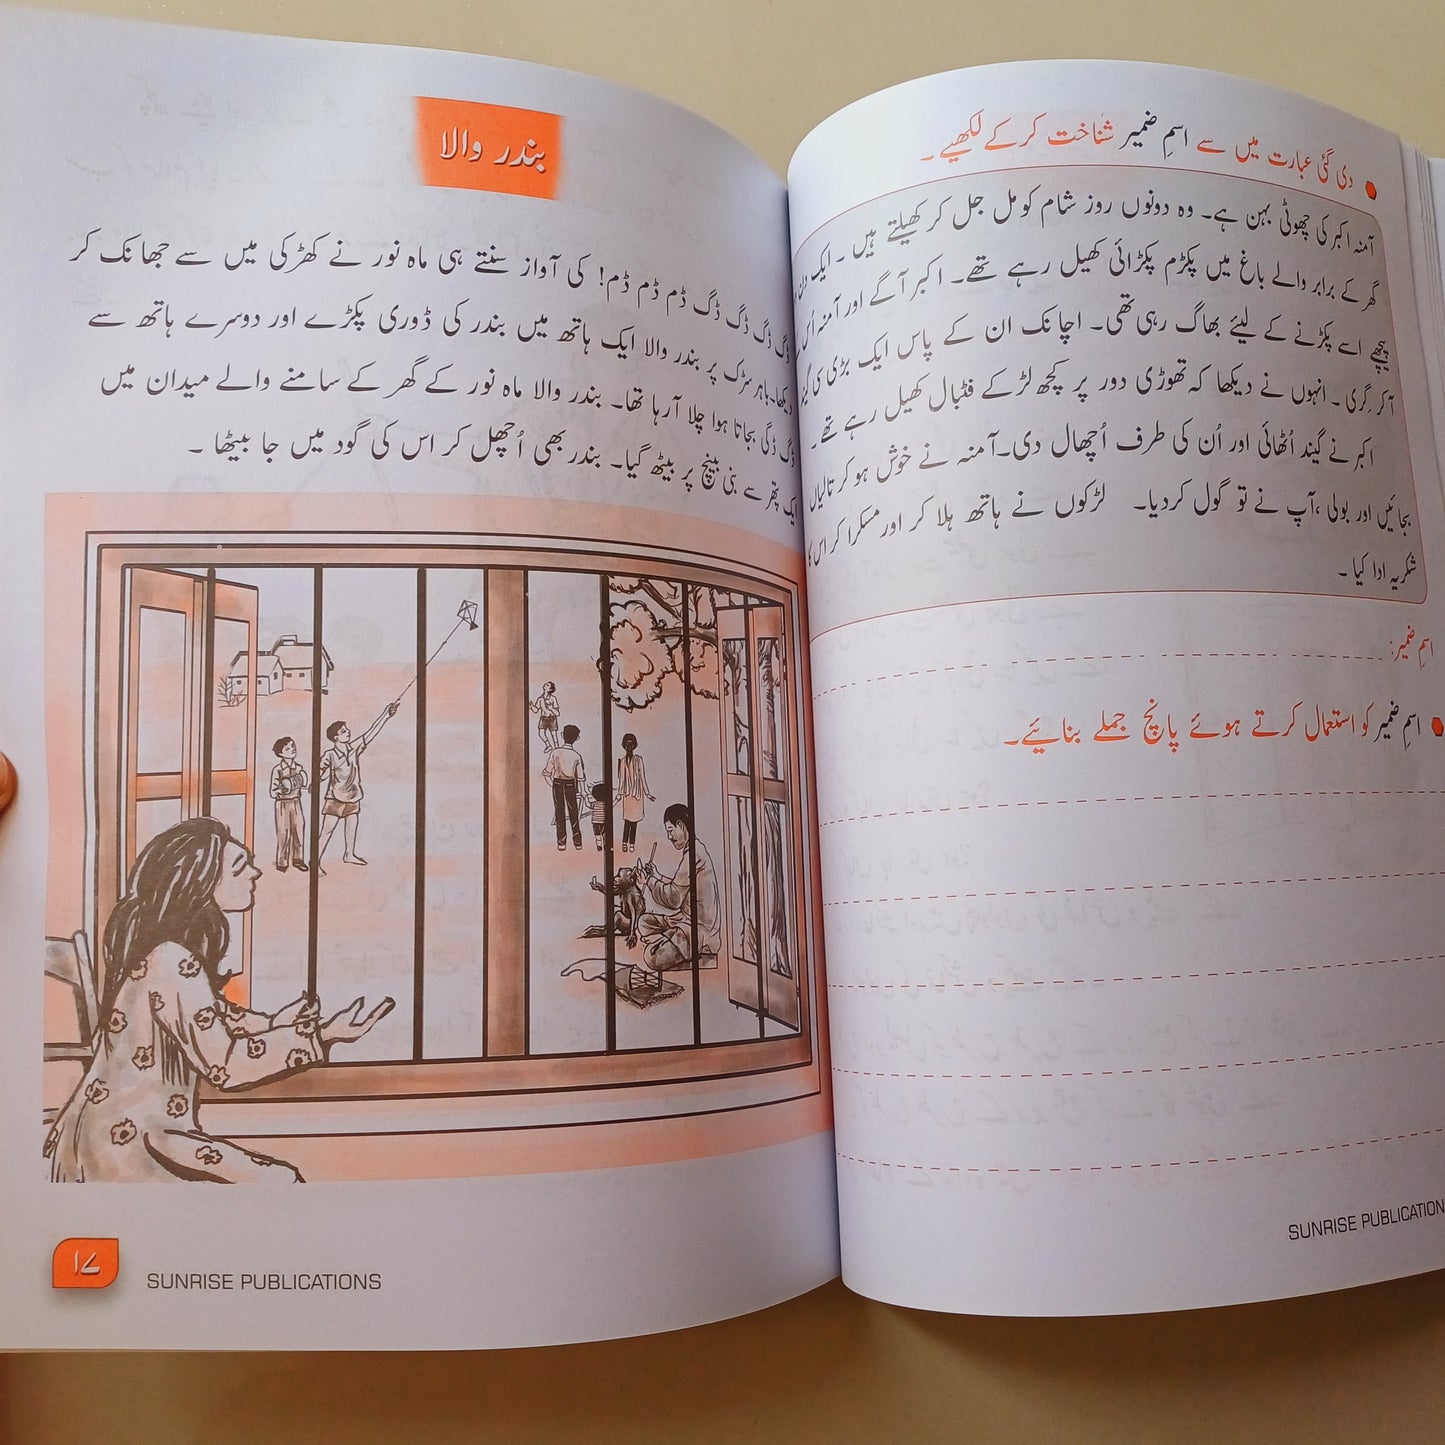 دی گئی عبارت میں سے اسمِ ضمیر شناخت کرکے لکھیے۔
آمنہ اکبر کی چھوٹی بہن ہے۔ وہ دونوں روز شام کو مل جل کر کھیلتے ہیں۔ ایک دن
گھر کے برابر والے باغ میں پکڑم پکڑائی کھیل رہے تھے۔ اکبر آگے اور آمنہ اُس
پیچھے اسے پکڑنے کے لیئے بھاگ رہی تھی۔ اچانک ان کے پاس ایک بڑی سی
آکر گِری۔ انہوں نے دیکھا کہ تھوڑی دور پر کچھ لڑکے فٹبال کھیل رہے تھے۔
اکبر نے گیند اُٹھائی اور اُن کی طرف اُچھال دی۔ آمنہ نے خوش ہو کر تالیاں
بجائیں اور بولی، آپ نے تو گول کردیا۔ لڑکوں نے ہاتھ ہلا کر اور مسکرا کر اس
شکریہ ادا کیا۔
اسمِ ضمیر:
اسمِ ضمیر کو استعمال کرتے ہوئے پانچ جملے بنائیے۔
SUNRISE PUBLICATION
بندر والا
ڈگ ڈگ ڈگ ڈگ ڈم ڈم ڈم! کی آواز سنتے ہی ماہ نور نے کھڑکی میں سے جھانک کر
دیکھا۔ باہر سڑک پر بندر والا ایک ہاتھ میں بندر کی ڈوری پکڑے اور دوسرے ہاتھ سے
ڈگ ڈگی بجاتا ہوا چلا آرہا تھا۔ بندر والا ماہ نور کے گھر کے سامنے والے میدان میں
ایک پتھر سے بنی بینچ پر بیٹھ گیا۔ بندر بھی اُچھل کر اس کی گود میں جا بیٹھا۔
۱۷
SUNRISE PUBLICATIONS